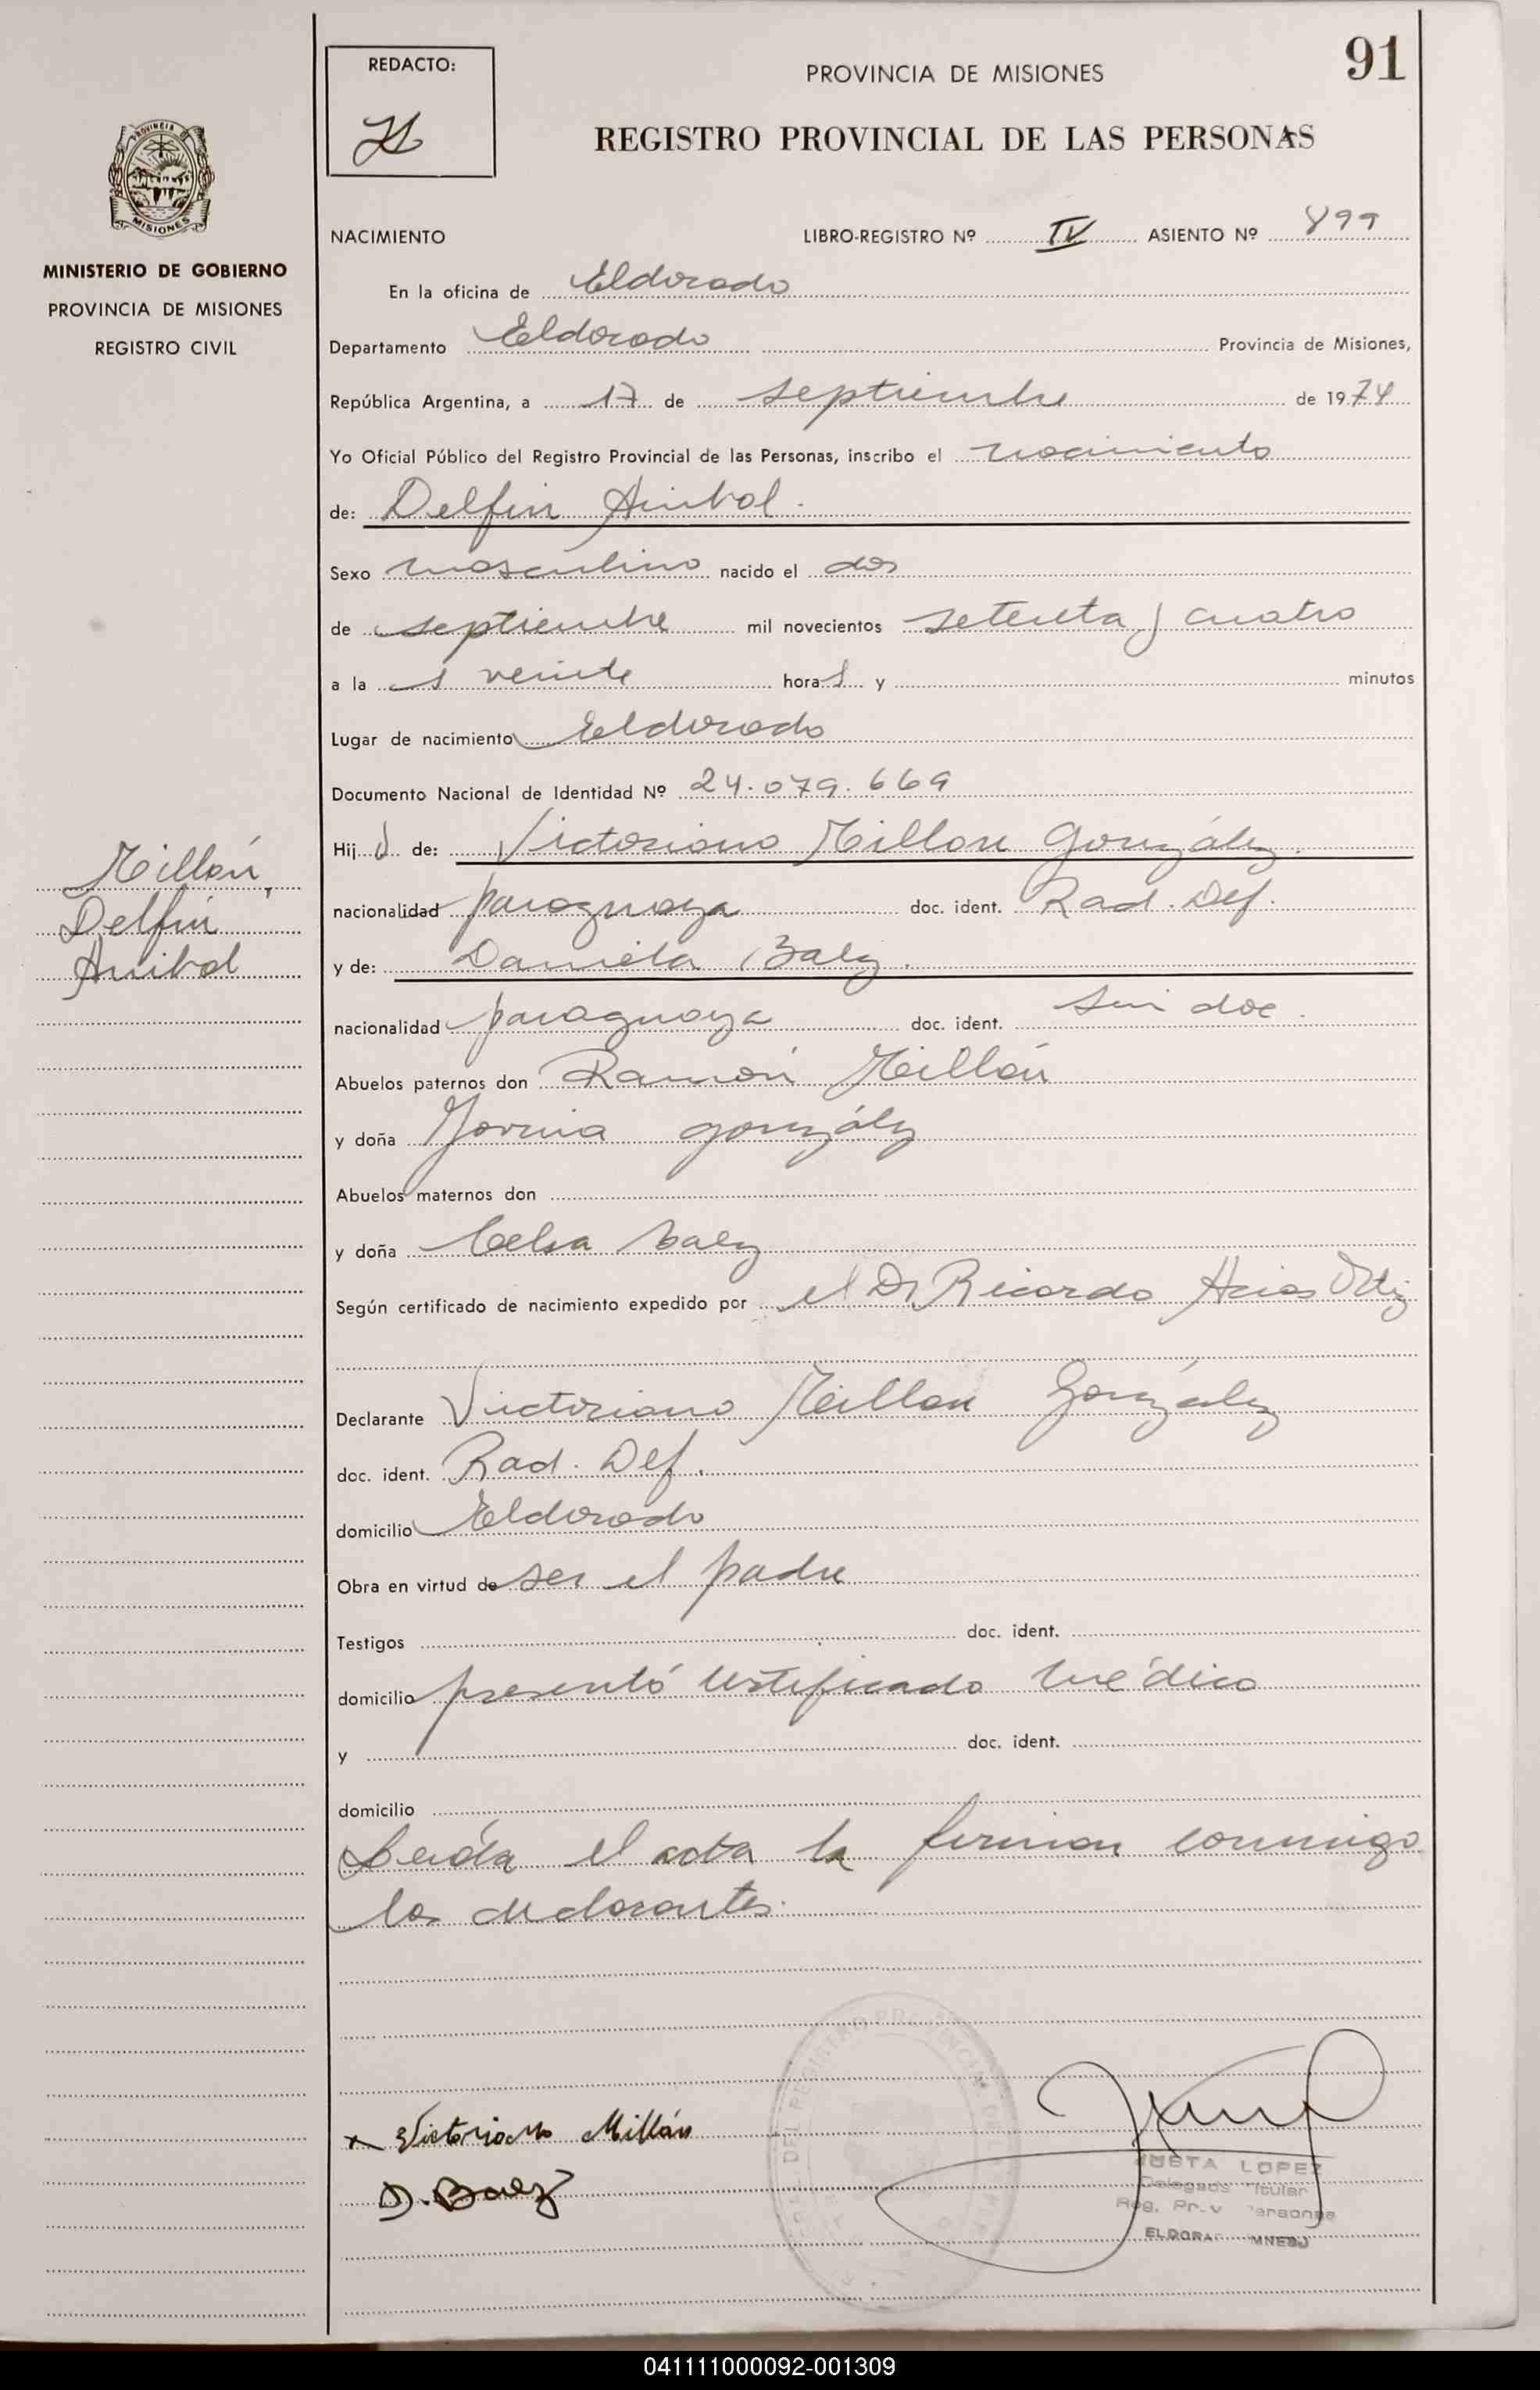 91
REDACTO:
PROVINCIA DE MISIONES
REGISTRO PROVINCIAL DE LAS PERSONAS
PROVINCIA DE
MISIONES
MINISTERIO DE GOBIERNO
PROVINCIA DE MISIONES
REGISTRO CIVIL
NACIMIENTO LIBRO-REGISTRO Nº IV ASIENTO Nº 899
En la oficina de Eldorado
Departamento Eldorado Provincia de Misiones,
República Argentina, a 17 de septiembre de 1974
Yo Oficial Público del Registro Provincial de las Personas, inscribo el nacimiento
de: Delfin Anibal.
Sexo masculino nacido el dos
de septiembre mil novecientos setenta y cuatro
a la s veinte horas y minutos
Lugar de nacimiento Eldorado
Documento Nacional de Identidad Nº 24.079.669
Hijo de: Victoriano Millan González.
nacionalidad paraguaya doc. ident. Rad. Def.
y de: Daniela Baez.
nacionalidad paraguaya doc. ident. sin doc.
Abuelos paternos don Ramón Millán
y doña González
Abuelos maternos don
y doña Celsa Baez
Según certificado de nacimiento expedido por el Dr Ricardo Arias Ortiz
Declarante Victoriano Millan González
doc. ident. Rad. Def.
domicilio Eldorado
Obra en virtud de ser el padre
Testigos doc. ident.
domicilio presentó certificado médico
y doc. ident.
domicilio
Leída el acta la firman conmigo
los declarantes.
Millán,
Delfín
Anibal
x Victoriano Millán
D. Baez
JUSTA LOPEZ
Titular
Reg.
041111000092-001309